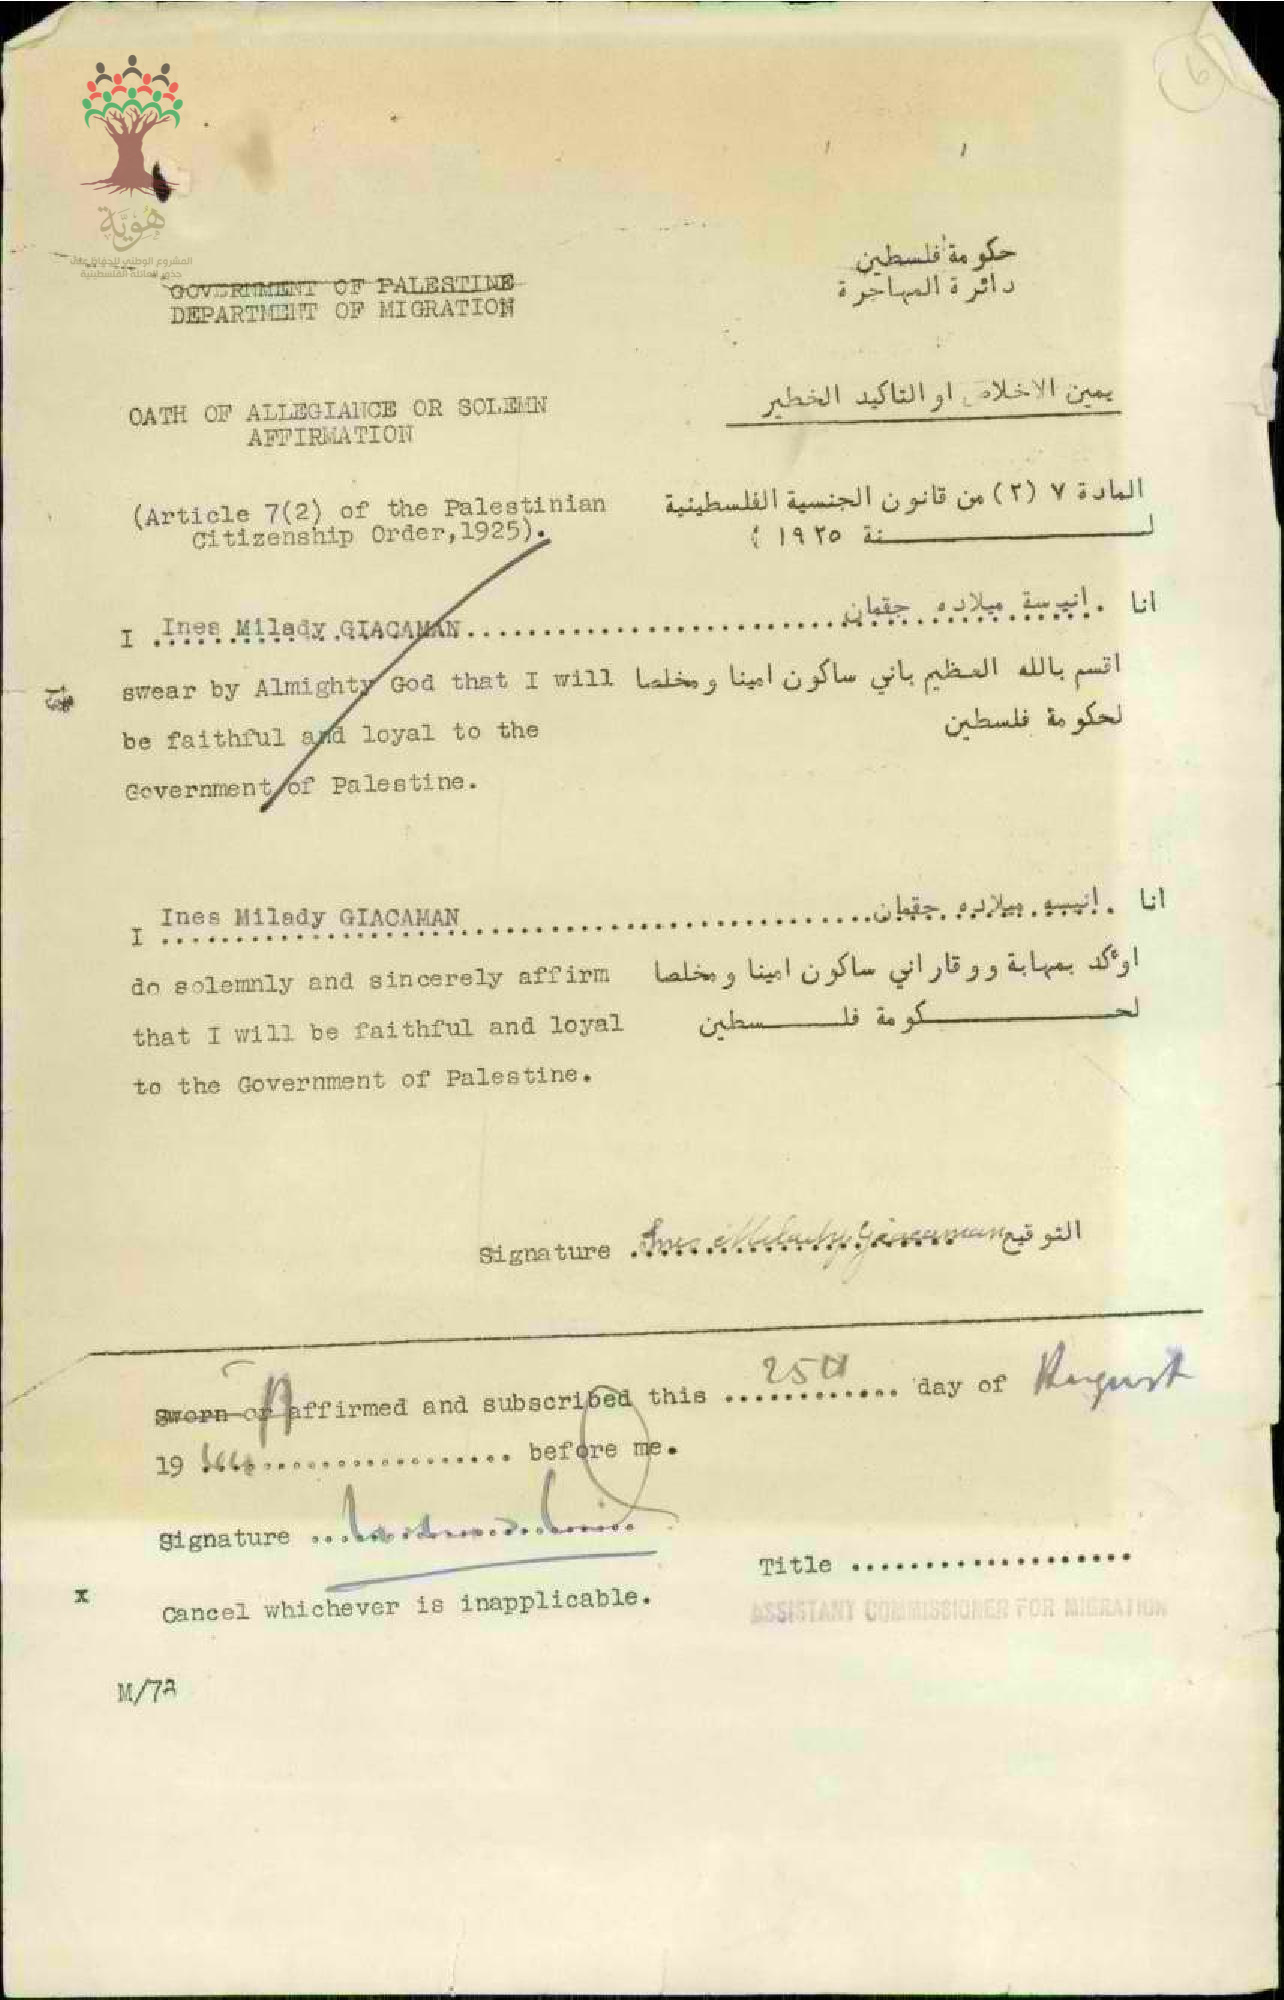 6
هوية
المشروع الوطني للحفاظ على
جذور العائلة الفلسطينية
GOVERNMENT OF PALESTINE
DEPARTMENT OF MIGRATION
حكومة فلسطين
دائرة المهاجرة
OATH OF ALLEGIANCE OR SOLEMN
AFFIRMATION
يمين الاخلاص او التاكيد الخطير
(Article 7(2) of the Palestinian
Citizenship Order,1925).
المادة ٧ (٢) من قانون الجنسية الفلسطينية
لسنة ١٩٢٥ :
I Ines Milady GIACAMAN
انا انيسة ميلاده جقمان
swear by Almighty God that I will
be faithful and loyal to the
Government of Palestine.
اقسم بالله العظيم باني ساكون امينا ومخلصا
لحكومة فلسطين
I Ines Milady GIACAMAN
انا انيسه ميلاده جقمان
do solemnly and sincerely affirm
that I will be faithful and loyal
to the Government of Palestine.
اوكد بمهابة ووقار اني ساكون امينا ومخلصا
لحكومة فلسطين
Signature Ines Milady Giacaman التوقيع
Sworn or affirmed and subscribed this 25th day of August
19 before me.
Signature
Title
ASSISTANT COMMISSIONER FOR MIGRATION
x Cancel whichever is inapplicable.
M/72